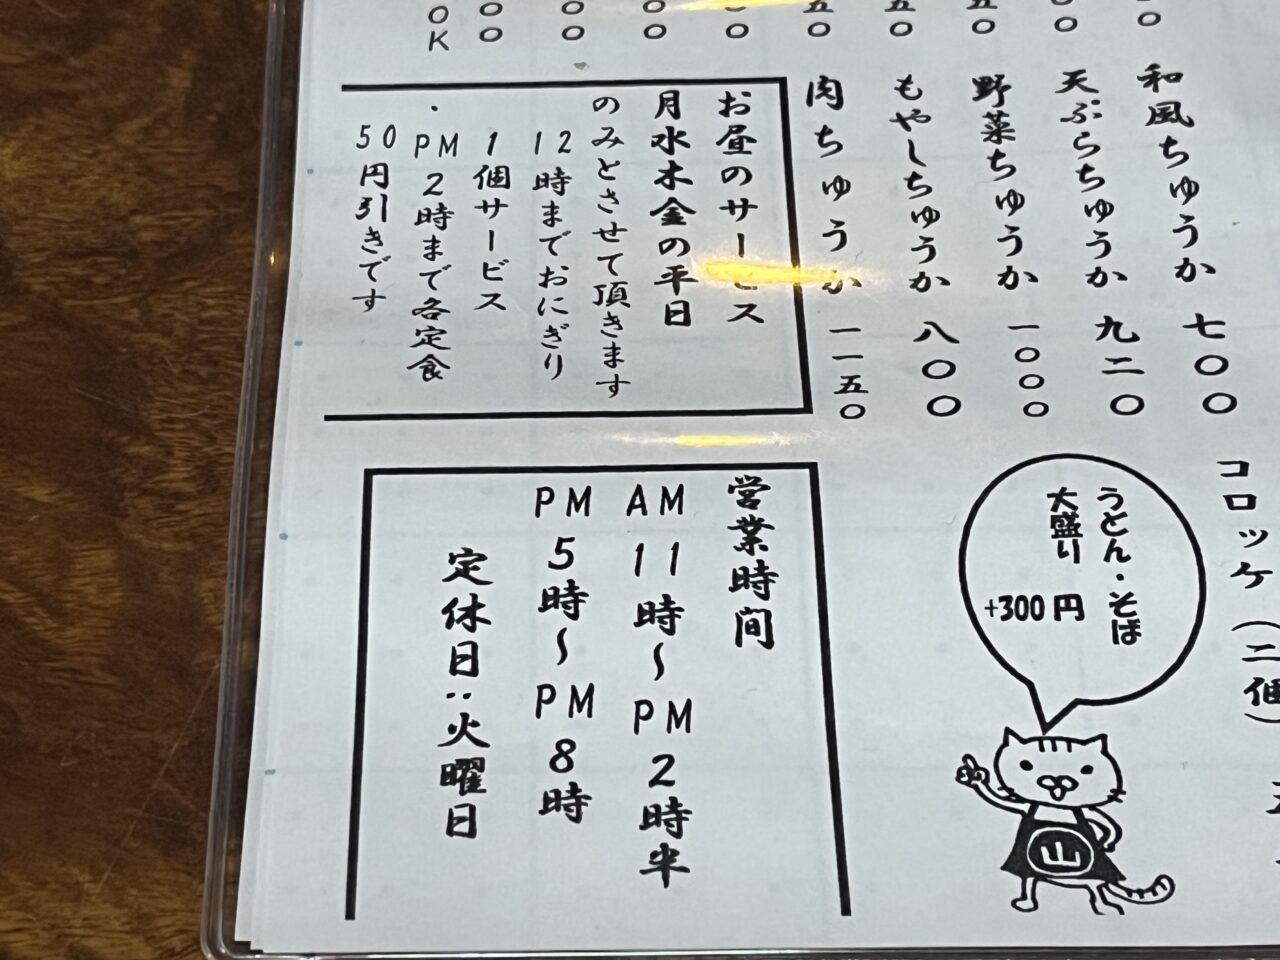 和風ちゅうか 七〇〇
天ぷらちゅうか 九二〇
野菜ちゅうか 一〇〇〇
もやしちゅうか 八〇〇
肉ちゅうか 一一五〇
お昼のサービス
月水木金の平日
のみとさせて頂きます
12時までおにぎり
1個サービス
・PM2時まで各定食
50円引きです
コロッケ(二個)
うどん・そば
大盛り
+300円
山
営業時間
AM11時〜PM2時半
PM5時〜PM8時
定休日:火曜日